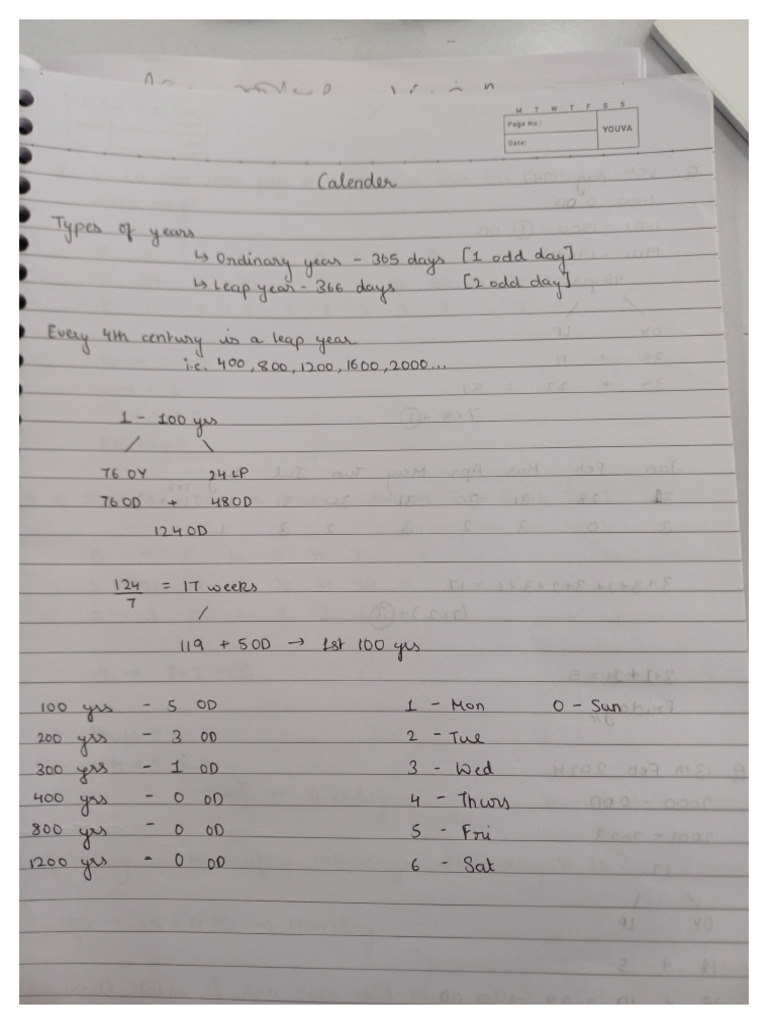 M T W T F S S
Page No.:
YOUVA
Date:
Calender
Types of years
↳ Ordinary year - 365 days [1 odd day]
↳ Leap year - 366 days [2 odd day]
Every 4th century is a leap year
i.e. 400, 800, 1200, 1600, 2000...
1 - 100 yrs
/ \
76 OY 24 LP
76 OD + 48 OD
124 OD
124/7 = 17 weeks
/
119 + 5 OD → 1st 100 yrs
100 yrs - 5 OD 1 - Mon 0 - Sun
200 yrs - 3 OD 2 - Tue
300 yrs - 1 OD 3 - Wed
400 yrs - 0 OD 4 - Thurs
800 yrs - 0 OD 5 - Fri
1200 yrs - 0 OD 6 - Sat